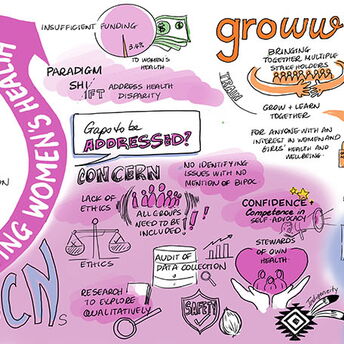 INSUFFICIENT FUNDING
3.4%
TO WOMEN'S
HEALTH
PARADIGM
SHIFT ADDRESS HEALTH
DISPARITY
Gaps to be
ADDRESSED?
CONCERN
NO IDENTIFYING
ISSUES WITH NO
MENTION OF BIPOC
LACK OF
ETHICS
ALL GROUPS
NEED TO BE
INCLUDED!
ETHICS
AUDIT OF
DATA COLLECTION
RESEARCH
TO EXPLORE
QUALITATIVELY
SAFETY
groww
BRINGING
TOGETHER MULTIPLE
STAKEHOLDERS
TEAM
GROW + LEARN
TOGETHER
FOR ANYONE WITH AN
INTEREST IN WOMEN AND
GIRLS' HEALTH AND
WELLBEING.
CONFIDENCE +
Competence in
SELF-ADVOCACY
STEWARDS
OF OWN
HEALTH
Indigeneity
ING WOMEN'S HEALTH
ON
CNs